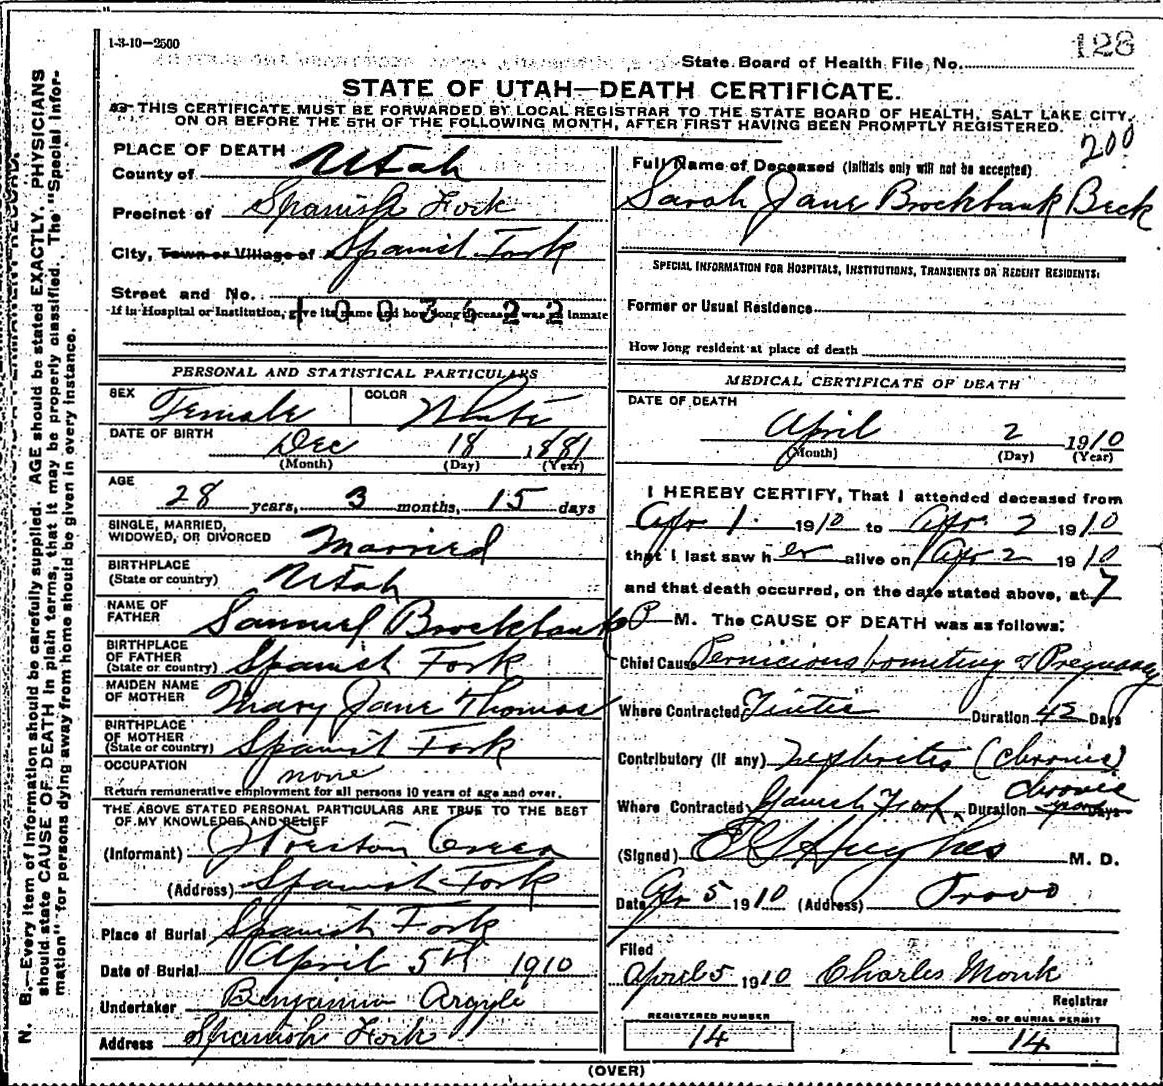 1-3-10—2500
128
State Board of Health File No.
STATE OF UTAH—DEATH CERTIFICATE.
THIS CERTIFICATE MUST BE FORWARDED BY LOCAL REGISTRAR TO THE STATE BOARD OF HEALTH, SALT LAKE CITY,
ON OR BEFORE THE 5TH OF THE FOLLOWING MONTH, AFTER FIRST HAVING BEEN PROMPTLY REGISTERED.
N. B.—Every item of information should be carefully supplied. AGE should be stated EXACTLY. PHYSICIANS
should state CAUSE OF DEATH in plain terms, that it may be properly classified. The "Special Infor-
mation" for persons dying away from home should be given in every instance.
PLACE OF DEATH
County of Utah
Precinct of Spanish Fork
City, Town or Village of Spanish Fork
Street and No.
1003422
If in Hospital or Institution, give its name and how long deceased was an inmate
PERSONAL AND STATISTICAL PARTICULARS
SEX Female COLOR White
DATE OF BIRTH Dec 18 1881
(Month) (Day) (Year)
AGE
28 years, 3 months, 15 days
SINGLE, MARRIED,
WIDOWED, OR DIVORCED Married
BIRTHPLACE
(State or country) Utah
NAME OF
FATHER Samuel Brockbank
BIRTHPLACE
OF FATHER
(State or country) Spanish Fork
MAIDEN NAME
OF MOTHER Mary Jane Thomas
BIRTHPLACE
OF MOTHER
(State or country) Spanish Fork
OCCUPATION none
Return remunerative employment for all persons 10 years of age and over.
THE ABOVE STATED PERSONAL PARTICULARS ARE TRUE TO THE BEST
OF MY KNOWLEDGE AND BELIEF
(Informant) J Preston Creer
(Address) Spanish Fork
Place of Burial Spanish Fork
Date of Burial April 5th 1910
Undertaker Benjamin Argyle
Address Spanish Fork
200
Full Name of Deceased (Initials only will not be accepted)
Sarah Jane Brockbank Beck
SPECIAL INFORMATION FOR HOSPITALS, INSTITUTIONS, TRANSIENTS OR RECENT RESIDENTS:
Former or Usual Residence
How long resident at place of death
MEDICAL CERTIFICATE OF DEATH
DATE OF DEATH
April 2 1910
(Month) (Day) (Year)
I HEREBY CERTIFY, That I attended deceased from
Apr 1. 1910 to Apr. 2 1910
that I last saw her alive on Apr 2 1910
and that death occurred, on the date stated above, at 7
P M. The CAUSE OF DEATH was as follows:
Chief Cause Pernicious vomiting of Pregnancy
Where Contracted Tintic Duration 42 Days
Contributory (if any) Nephrites (chronic)
chronic
Where Contracted Spanish Fork Duration Days
(Signed) E G Hughes M. D.
Date Apr 5 1910 (Address) Provo
Filed
April 5 1910 Charles Monk
Registrar
REGISTERED NUMBER
14
NO. OF BURIAL PERMIT
14
(OVER)